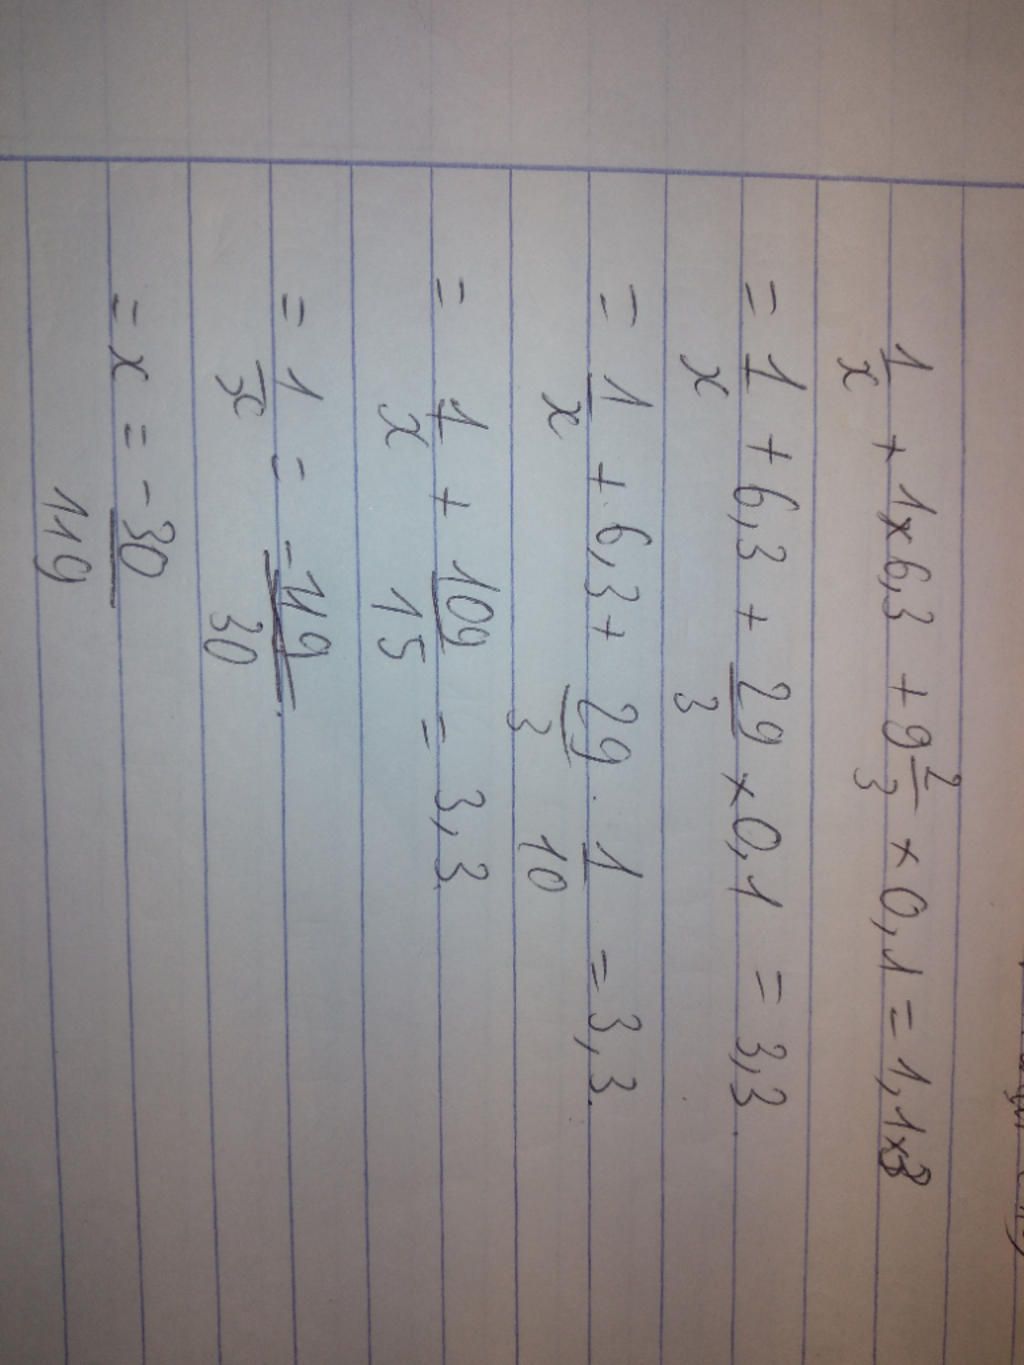 1/x + 1×6,3 + 9 2/3 × 0,1 = 1,1×3
= 1/x + 6,3 + 29/3 × 0,1 = 3,3.
= 1/x + 6,3 + 29/3 . 1/10 = 3,3.
= 1/x + 109/15 = 3,3.
= 1/x = -119/30.
= x = -30/119